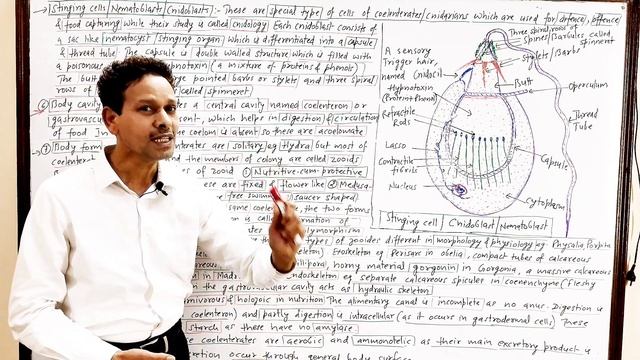 → Stinging cells/Nematoblasts/Cnidoblasts):- These are special type of cells of coelenterates/cnidarians which are used for defence, offence
& food capturing while their study is called cnidology. Each cnidoblast consists of
a sac like nematocyst/stinging organ which is differentiated into a capsule
& thread tube. The capsule is double walled structure which is filled with
a poisonous hypnotoxin (a mixture of proteins & phenols)
The butt large pointed barbs or stylets and three spiral
rows of called spinneret.
⑥ Body cavity a central cavity named coelenteron or
gastrovascu sent, which helps in digestion & circulation
of food In the coelom is absent so these are acoelomate
⑦ Body form erates are solitary eg Hydra but most of
coelenterat and the members of colony are called zooids
es of zooid ① Nutritive-cum-protective
ese are fixed & flower like ② Medusa-
free swimm saucer shaped
same coelen te, the two forms
n is called ation of
tes morphism
types of zooides different in morphology & physiology eg. Physalia, Porpita
keleton) Exoskeleton eg perisarc in obelia, compact tubes of calcareous
Millipora, horny material gorgonin in Gorgonia, a massive calcareous
n in Madr Endoskeleton eg separate calcareous spicules in coenenchyme (fleshy
n the gastrovascular cavity acts as hydraulic skeleton
nivorous & holozoic in nutrition The alimentary canal is incomplete as no anus. Digestion is
coelenteron) and partly digestion is intracellular (as it occurs in gastrodermal cells) These
starch as these have no amylase.
se coelenterates are aerobic and ammonotelic as their main excretory product is
cretion occur through general body surface
Three spiral rows of
Spines/Barbules called
spinneret
Stylets/Barbs
A sensory
Trigger hair,
named Cnidocil
Butt
Operculum
Hypnotoxin
(Protein+Phenol)
Refractile
Rods
Thread
Tube
Lasso
Contractile
fibrils
Capsule
Nucleus
Cytoplasm
Stinging cell/Cnidoblast/Nematoblast